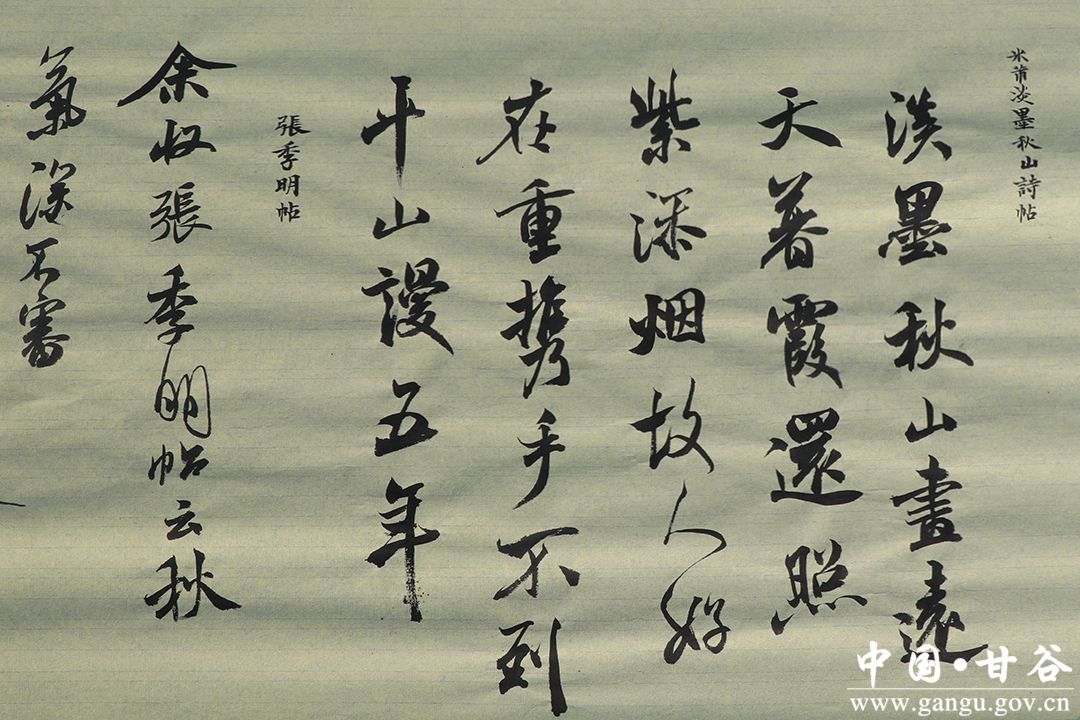 米芾淡墨秋山詩帖
淡墨秋山畫遠
天暮霞還照
紫添烟故人好
在重携手不到
平山謾五年
張季明帖
余收張季明帖云秋
氣深不審
中国·甘谷
www.gangu.gov.cn